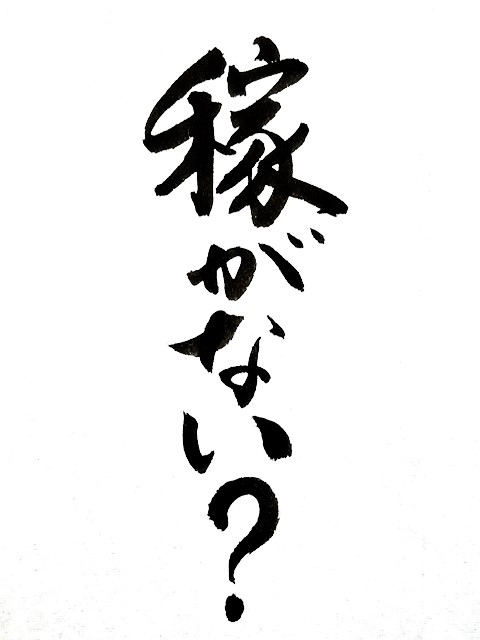 稼がない?